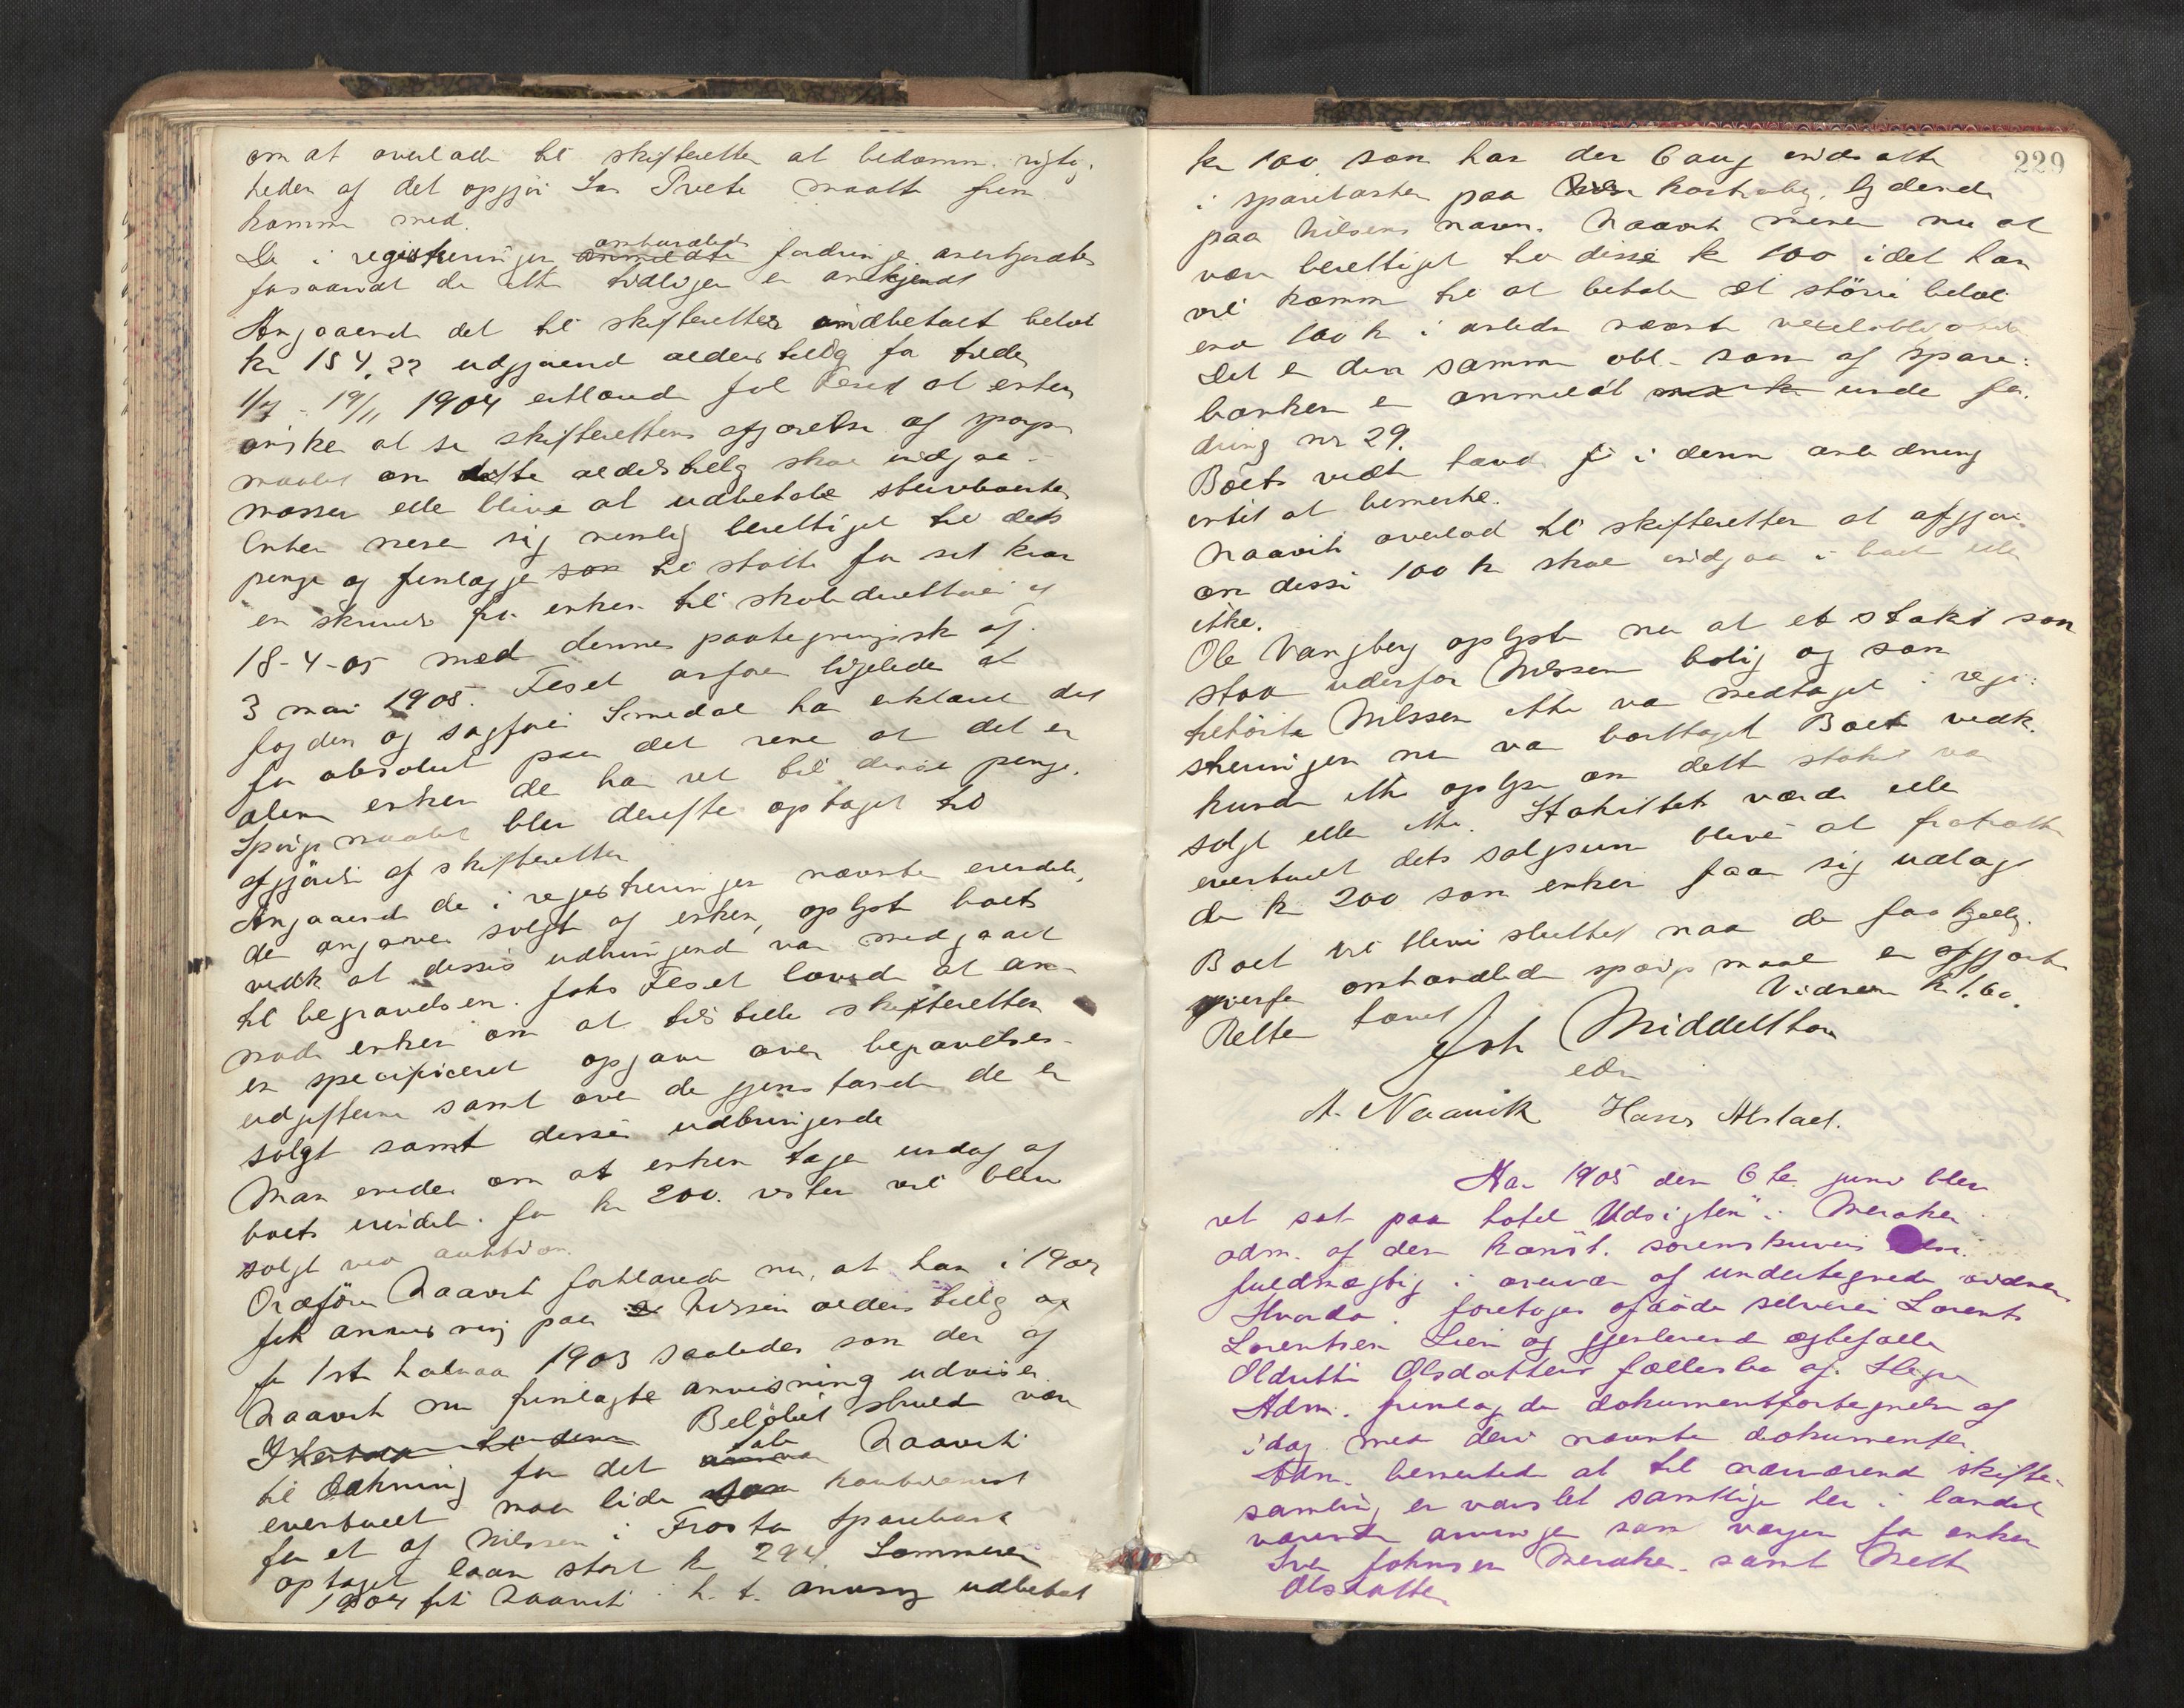 om at overlade til skifteretten at bedømme rigtig-
heden af det opgjør Lars Tvete maatte frem
komme med.
De i registreringen omhandlede anmeldte fordringer anerkjendtes
forsaavidt de ikke tidligere er anerkjendt
Angaaende det til skifteretten indbetalt beløb
kr 154,22 udgjørende alderstillæg for tiden
1/7 - 19/11 1904 erklærede Joh Feset at enken
ønsker at se skifterettens afgjørelse af spørgs
maalet om dette alderstillæg skal indgaa i
massen eller blive at udbetale stervboenken
Enken mener sig nemlig berettiget til dets
penge og fremlægger som til støtte for sit krav
en skrivelse fra enken til skoledirektøren af
18-4-05 med dennes paategningssk af
3 mai 1905. Feset anfører ligeledes at
fogden og sagfører Smedal har erklæret det
for absolut paa det rene at det er
alene enken der har ret til disse penge.
Spørgsmaalet blev derefter optaget til
afgjørelse af skifteretten
Angaaende de i registreringen nævnte eiendele,
der angives solgt af enken, oplyste boets
vedk at disses udbringende var medgaaet
til begravelsen. Johs Feset lovede at an-
mode enken om at tilstille skifteretten
en specificeret opgave over begravelses-
udgifterne samt over de gjenstande der er
solgt samt disses udbringende
Man enedes om at enken tager undag af
boets eiendele for kr 200. resten vil blive
solgt ved auktion.
Ordfører Naavik forklarede nu, at han i 1904
fik anvisning paa Nilssen alderstillæg og
for 1ste halvaar 1903 saaledes som den af
Naavik nu fremlagte anvisning udviser.
Beløbet skulde være
til dækning for det tab Naavik
eventuelt maa lide som kautionist
for et af Nilssen i Frosta Sparebank
optaget laan stort kr 294. Sommeren
1904 fik Naavik i h. t. anvisng udbetalt
229
kr 100 som han den 6 aug indsatte
i sparekassen paa kontrabog, lydende
paa Nilsens navn. Naavik mener nu at
være berettiget til disse kr 100 idet han
vil komme til at betale et større beløb
end 100 kr i anledn nævnte vexelobligation
Det er den samme obl. som af spare-
banken er anmeldt under for-
dring nr 29.
Boets vedk havde i denne anledning
intet at bemerke.
Naavik overlod til skifteretten at afgjøre
om disse 100 kr skal indgaa i boet eller
ikke.
Ole Vangberg oplyste nu at et stakit som
staar udenfor Nilssen bolig og som
tilhørte Nilssen ikke var medtaget i regi-
streringen nu var borttaget Boets vedk.
kunde ikke oplyse om dette stakit var
solgt eller ikke. Stakittets værdi eller
eventuelt dets salgssum bliver at fratrække
de kr 200 som enken faar sig udlagt
Boet vil blive sluttet naar de forskjellige
ovenfor omhandlede spørgsmaal er afgjort
Vidnen kr 1.60.
Retten hævet
Joh Middelthon
edv
A. Naavik Hans Alstad.
Aar 1905 den 6te juni blev
ret sat paa hotel "Udsigten" i Meraker
adm. af den konst. sorenskriver edv.
fuldmægtig i overvær af undertegnede vidner.
Hvorda foretoges afdøde selveier Lorents
Lorentsen Lien og gjenlevende egtefælle
Oldrutte Olsdatters fællesbo af Hegra
Adm. fremlagde dokumentfortegnelse af
idag med deri nævnte dokumenter.
Adm. bemerkede at til nærværende skifte-
samling er varslet samtlige her i landet
værende arvinger samt værgen for enken
Iver Johnsen Meraker samt Nette
Olsdatter